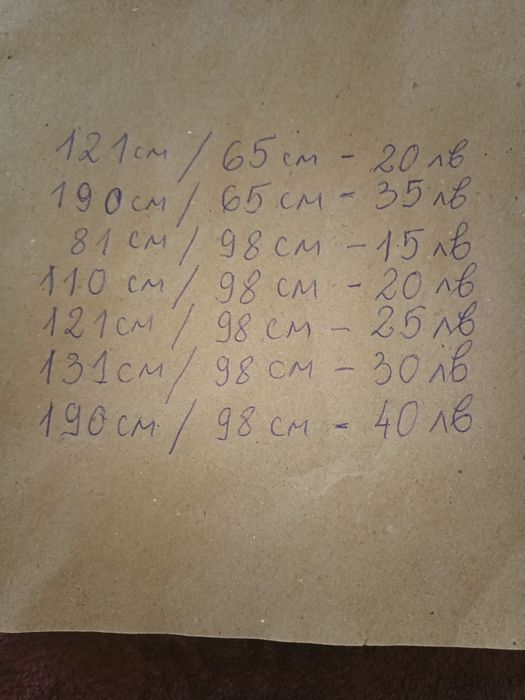 121 см / 65 см - 20 лв
190 см / 65 см - 35 лв
81 см / 98 см - 15 лв
110 см / 98 см - 20 лв
121 см / 98 см - 25 лв
131 см / 98 см - 30 лв
190 см / 98 см - 40 лв